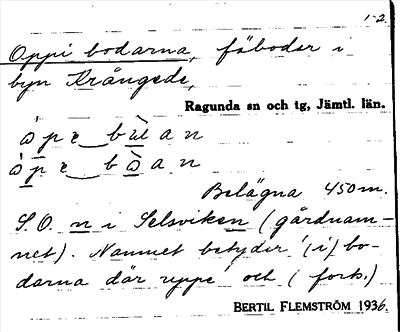 1-2.
Oppi bodarna, fäbodar i
byn Krångede,
Ragunda sn och tg, Jämtl. län.
Belägna 450 m.
S.O. n i Selsviken (gårdnam-
net). Namnet betyder '(i) bo-
darna där uppe' och (forts.)
BERTIL FLEMSTRÖM 1936.